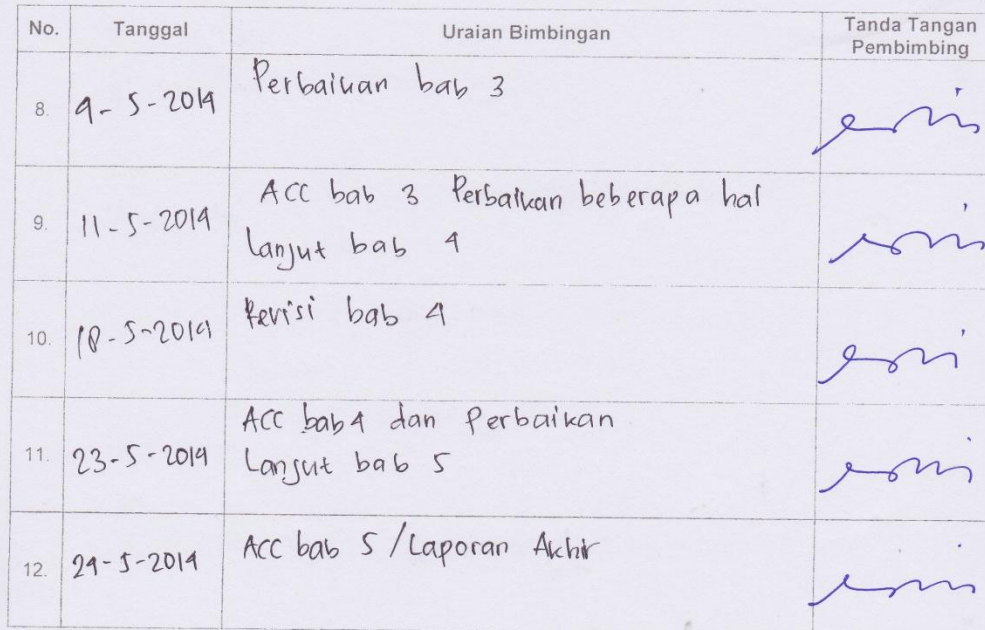 No.
Tanggal
Uraian Bimbingan
Tanda Tangan
Pembimbing
8.
4-5-2014
Perbaikan bab 3
9.
11-5-2014
ACC bab 3 Perbaikan beberapa hal
Lanjut bab 4
10.
18-5-2014
Revisi bab 4
11.
23-5-2014
ACC bab 4 dan Perbaikan
Lanjut bab 5
12.
24-5-2014
ACC bab 5 / Laporan Akhir